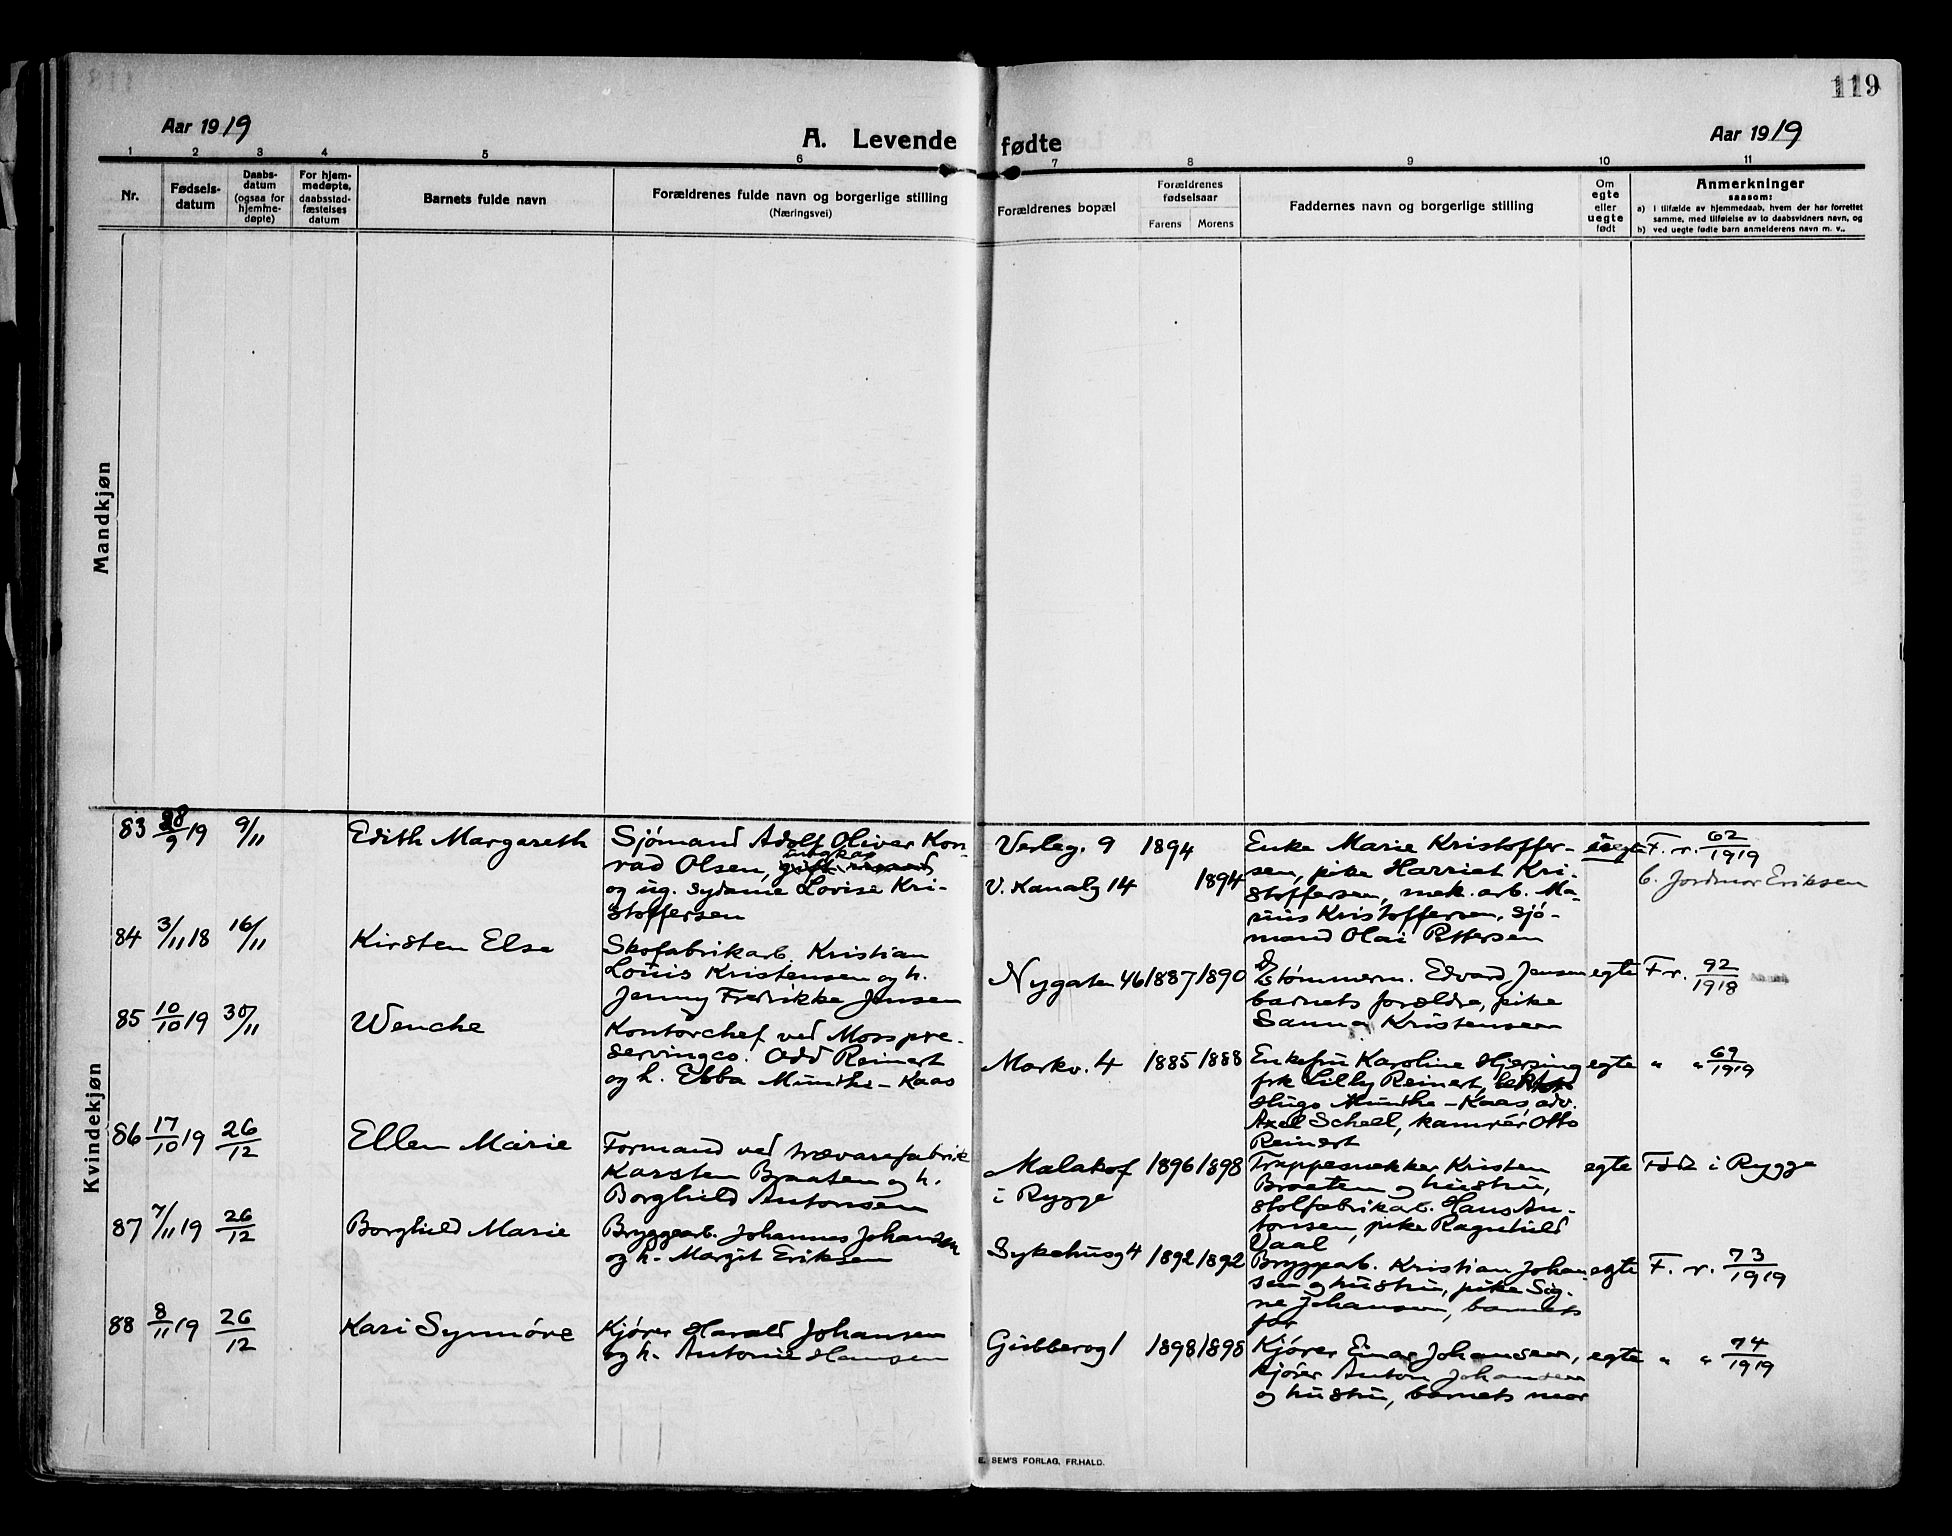 119
Aar 1919
A. Levende fødte
Aar 1919
1 2 3 4 5 6 7 8 9 10 11
Nr.
Fødsels-
datum
Daabs-
datum
(ogsaa for
hjemme-
døpte)
For hjem-
medøpte,
daabsstad-
fæstelses
datum
Barnets fulde navn
Forældrenes fulde navn og borgerlige stilling
(Næringsvei)
Forældrenes bopæl
Forældrenes
fødselsaar
Farens Morens
Faddernes navn og borgerlige stilling
Om
egte
eller
uegte
født
Anmerkninger
saasom:
a) i tilfælde av hjemmedaab, hvem der har forrettet
samme, med tilføielse av to daabsvidners navn, og
b) ved uegte fødte barn anmelderens navn m. v..
Mandkjøn
Kvindekjøn
83 28/9 19 9/11
Edith Margareth
Sjömand Adolf Oliver Kon-
rad Olsen, ungkar
og ug. sydame Lovise Kri-
stoffersen
Verleg. 9 1894
V. Kanalg 14 1894
Enke Marie Kristoffer-
sen, pike Harriet Kri-
stoffersen, mek. arb. Ma-
rius Kristoffersen, sjö-
mand Olai Pettersen
uegte
F. r. 62/1919
b. Jordmor Eriksen
84 3/11 18 16/11
Kirsten Else
Skofabrikarb. Kristian
Louis Kristensen og h.
Jenny Fredrikke Jensen
Nygaten 46 1887 1890
Tömmerm. Edvard Jensen
barnets forældre, pike
Sanna Kristensen
egte
F r. 92/1918
85 10/10 19 30/11
Wenche
Kontorchef ved Moss pre-
servingco. Odd Reinert
og h. Ebba Munthe-Kaas
Markv. 4 1885 1888
Enkefru Karoline Hjersing
frk Lilly Reinert,
Hugo Munthe-Kaas, adv.
Axel Scheel, kamrér Otto
Reinert
egte
" " 69/1919
86 17/10 19 26/12
Ellen Marie
Formand ved trævarefabrik
Karsten Braaten og h.
Borghild Antonsen
Malakof 1896 1898
i Rygge
Trappesnekker Kristen
Braaten og hustru,
stolfabrikarb. Hans An-
tonsen, pike Ragnhild
Vaal
egte
Född i Rygge
87 7/11 19 26/12
Borghild Marie
Bryggearb. Johannes Johansen
og h. Margit Eriksen
Sykehusg 4 1892 1892
Bryggearb. Kristian Johan
sen og hustru, pike Sig-
ne Johansen, barnets
far
egte
F. r. 73/1919
88 8/11 19 26/12
Kari Synnöve
Kjörer Harald Johansen
og h. Antonie Hansen
Gubberog 1 1898 1898
Kjörer Einar Johansen,
kjörer Anton Johansen
og hustru, barnets mor
egte
" " 74/1919
E. SEM'S FORLAG, FR.HALD.